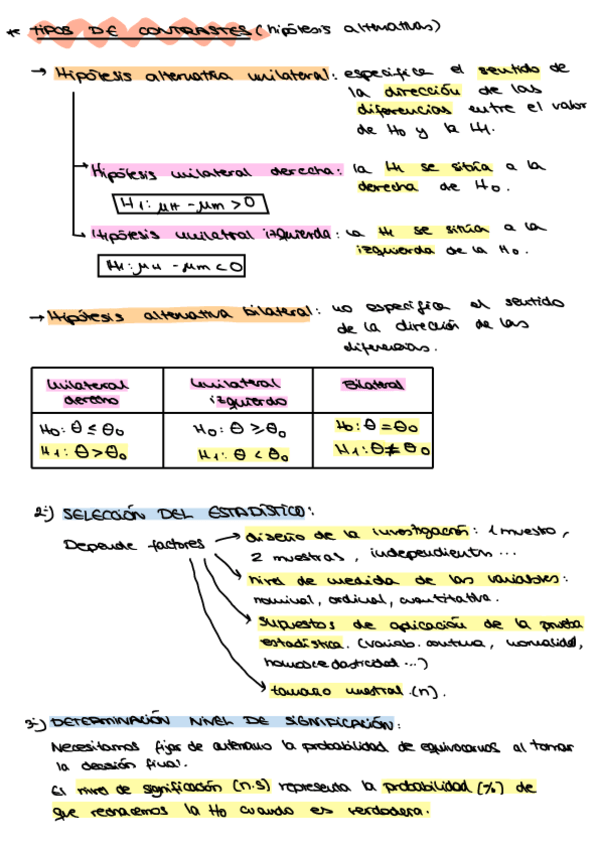 * TIPOS DE CONTRASTES (hipótesis alternativas)
→ Hipótesis alternativa unilateral: especifica el sentido de
la dirección de las
diferencias entre el valor
de H0 y la H1.
Hipótesis unilateral derecha: la H1 se sitúa a la
derecha de H0.
H1: μH - μm > 0
Hipótesis unilateral izquierda: la H1 se sitúa a la
izquierda de la H0.
H1: μH - μm < 0
→ Hipótesis alternativa bilateral: no especifica el sentido
de la dirección de las
diferencias.
Unilateral derecho
Unilateral izquierdo
Bilateral
H0: θ ≤ θ0
H0: θ ≥ θ0
H0: θ = θ0
H1: θ > θ0
H1: θ < θ0
H1: θ ≠ θ0
2-) SELECCIÓN DEL ESTADÍSTICO:
Depende factores → diseño de la investigación: 1 muestra,
2 muestras, independientes ...
nivel de medida de las variables:
nominal, ordinal, cuantitativa.
supuestos de aplicación de la prueba
estadística. (variab. continua, normalidad,
homocedasticidad ...)
tamaño muestral (n).
3-) DETERMINACIÓN NIVEL DE SIGNIFICACIÓN:
Necesitamos fijar de antemano la probabilidad de equivocarnos al tomar
la decisión final.
El nivel de significación (n.s) representa la probabilidad (%) de
que rechacemos la H0 cuando es verdadera.